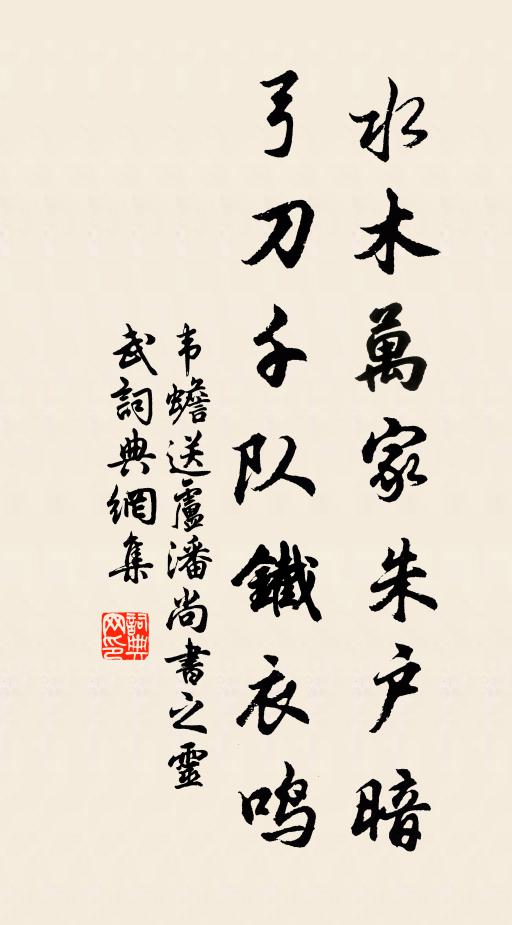 水木萬家朱户暗
弓刀千队鐵衣鸣
韦蟾送盧潘尚書之靈
武詞典網集
詞典网印